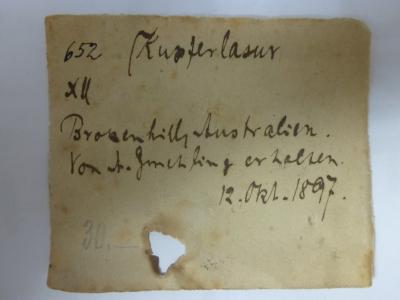 652 Kupferlasur
XII
Brokenhill, Australien.
Von A. erhalten.
12. Okt. 1897.
30.—